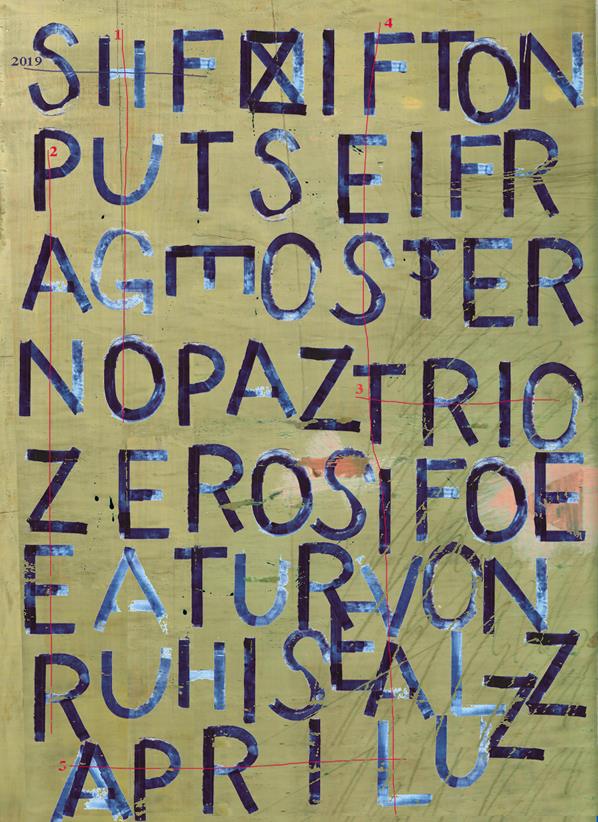 1 4
2019
SIHFXIFTON
2
PUTSEIFR
AGEOSTER
NOPAZTRIO
3
ZEROSIFOE
EATURVON
RUHISEALZZ
5
APRILU